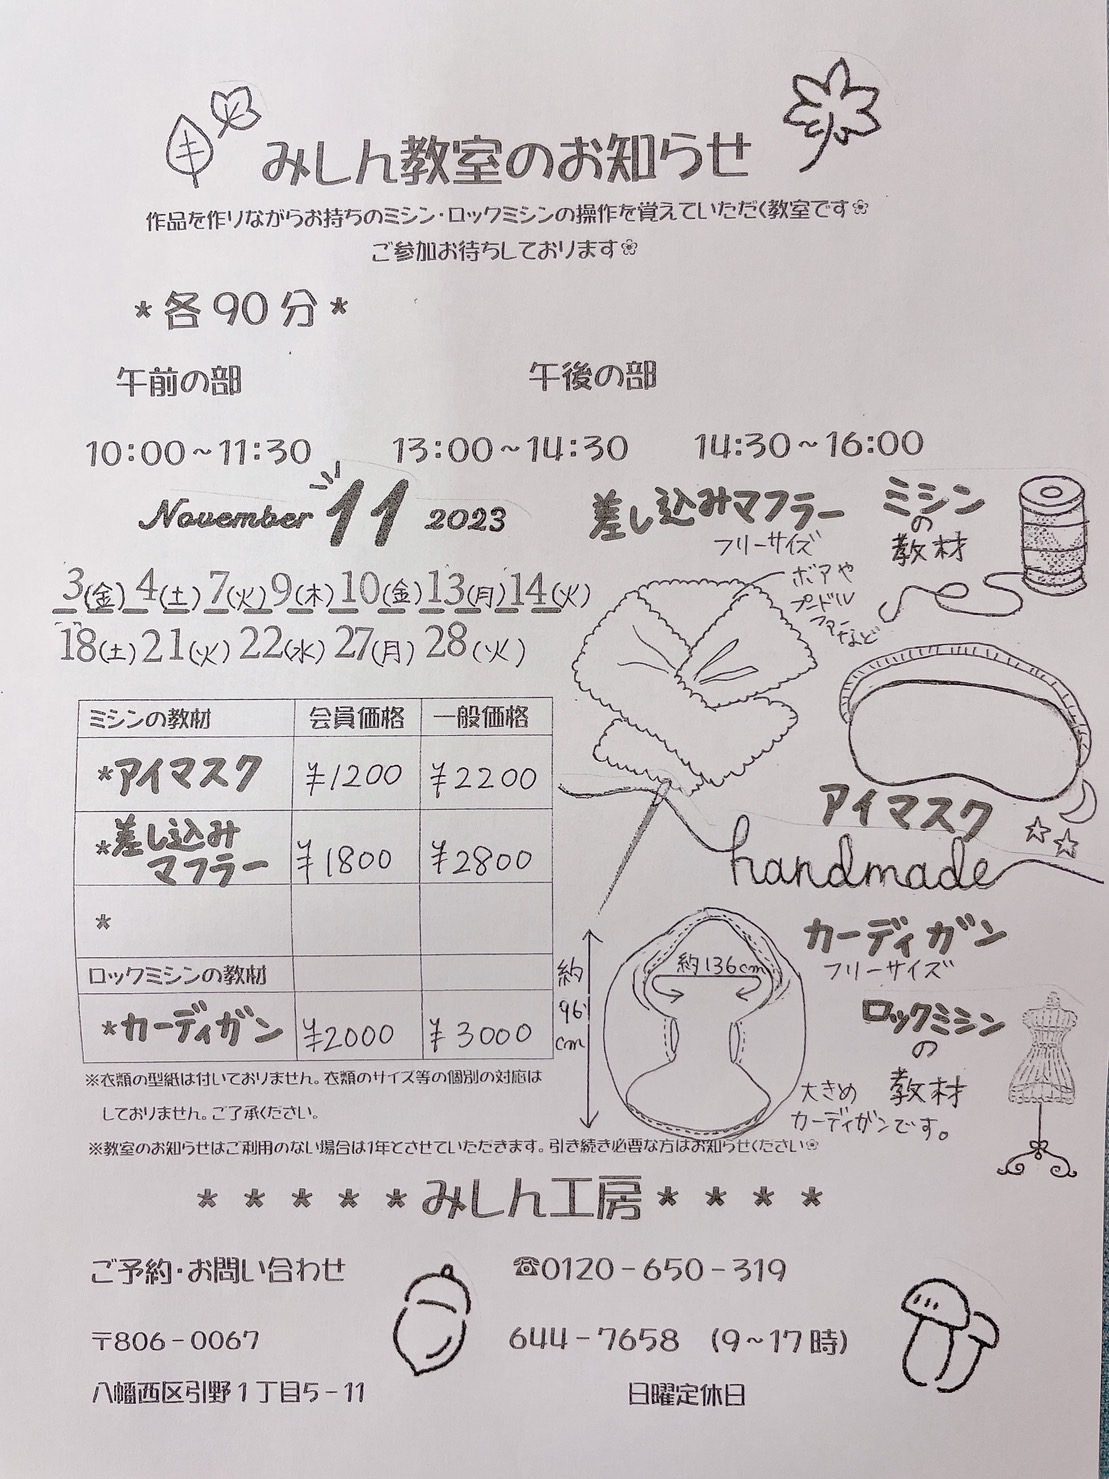 みしん教室のお知らせ
作品を作りながらお持ちのミシン・ロックミシンの操作を覚えていただく教室です❀
ご参加お待ちしております❀
*各90分*
午前の部 午後の部
10:00~11:30 13:00~14:30 14:30~16:00
November 11 2023
3(金) 4(土) 7(火) 9(木) 10(金) 13(月) 14(火)
18(土) 21(火) 22(水) 27(月) 28(火)
差し込みマフラー
フリーサイズ
ボアや
プードル
ファー
など
ミシン
の
教材
アイマスク
handmade
ミシンの教材 会員価格 一般価格
*アイマスク ¥1200 ¥2200
*差し込み
マフラー ¥1800 ¥2800
*
ロックミシンの教材
*カーディガン ¥2000 ¥3000
約
96
cm
約136cm
カーディガン
フリーサイズ
ロックミシン
の
教材
大きめ
カーディガンです。
※衣類の型紙は付いておりません。衣類のサイズ等の個別の対応は
しておりません。ご了承ください。
※教室のお知らせはご利用のない場合は1年とさせていただきます。引き続き必要な方はお知らせください❀
* * * * *みしん工房* * * *
ご予約・お問い合わせ ☎0120-650-319
〒806-0067 644-7658 (9~17時)
八幡西区引野1丁目5-11 日曜定休日